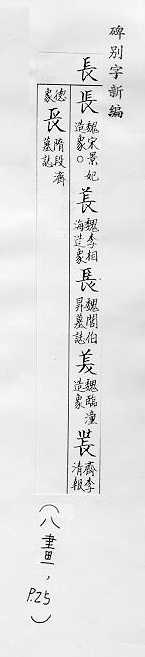 碑別字新編
長 長 魏宋景妃造象。 镸 魏李相海造象 镸 魏閻伯昇墓誌 羙 魏臨潼造象 镸 齊李清報
德象 長 隋段濟墓誌
(八畫, P.25)